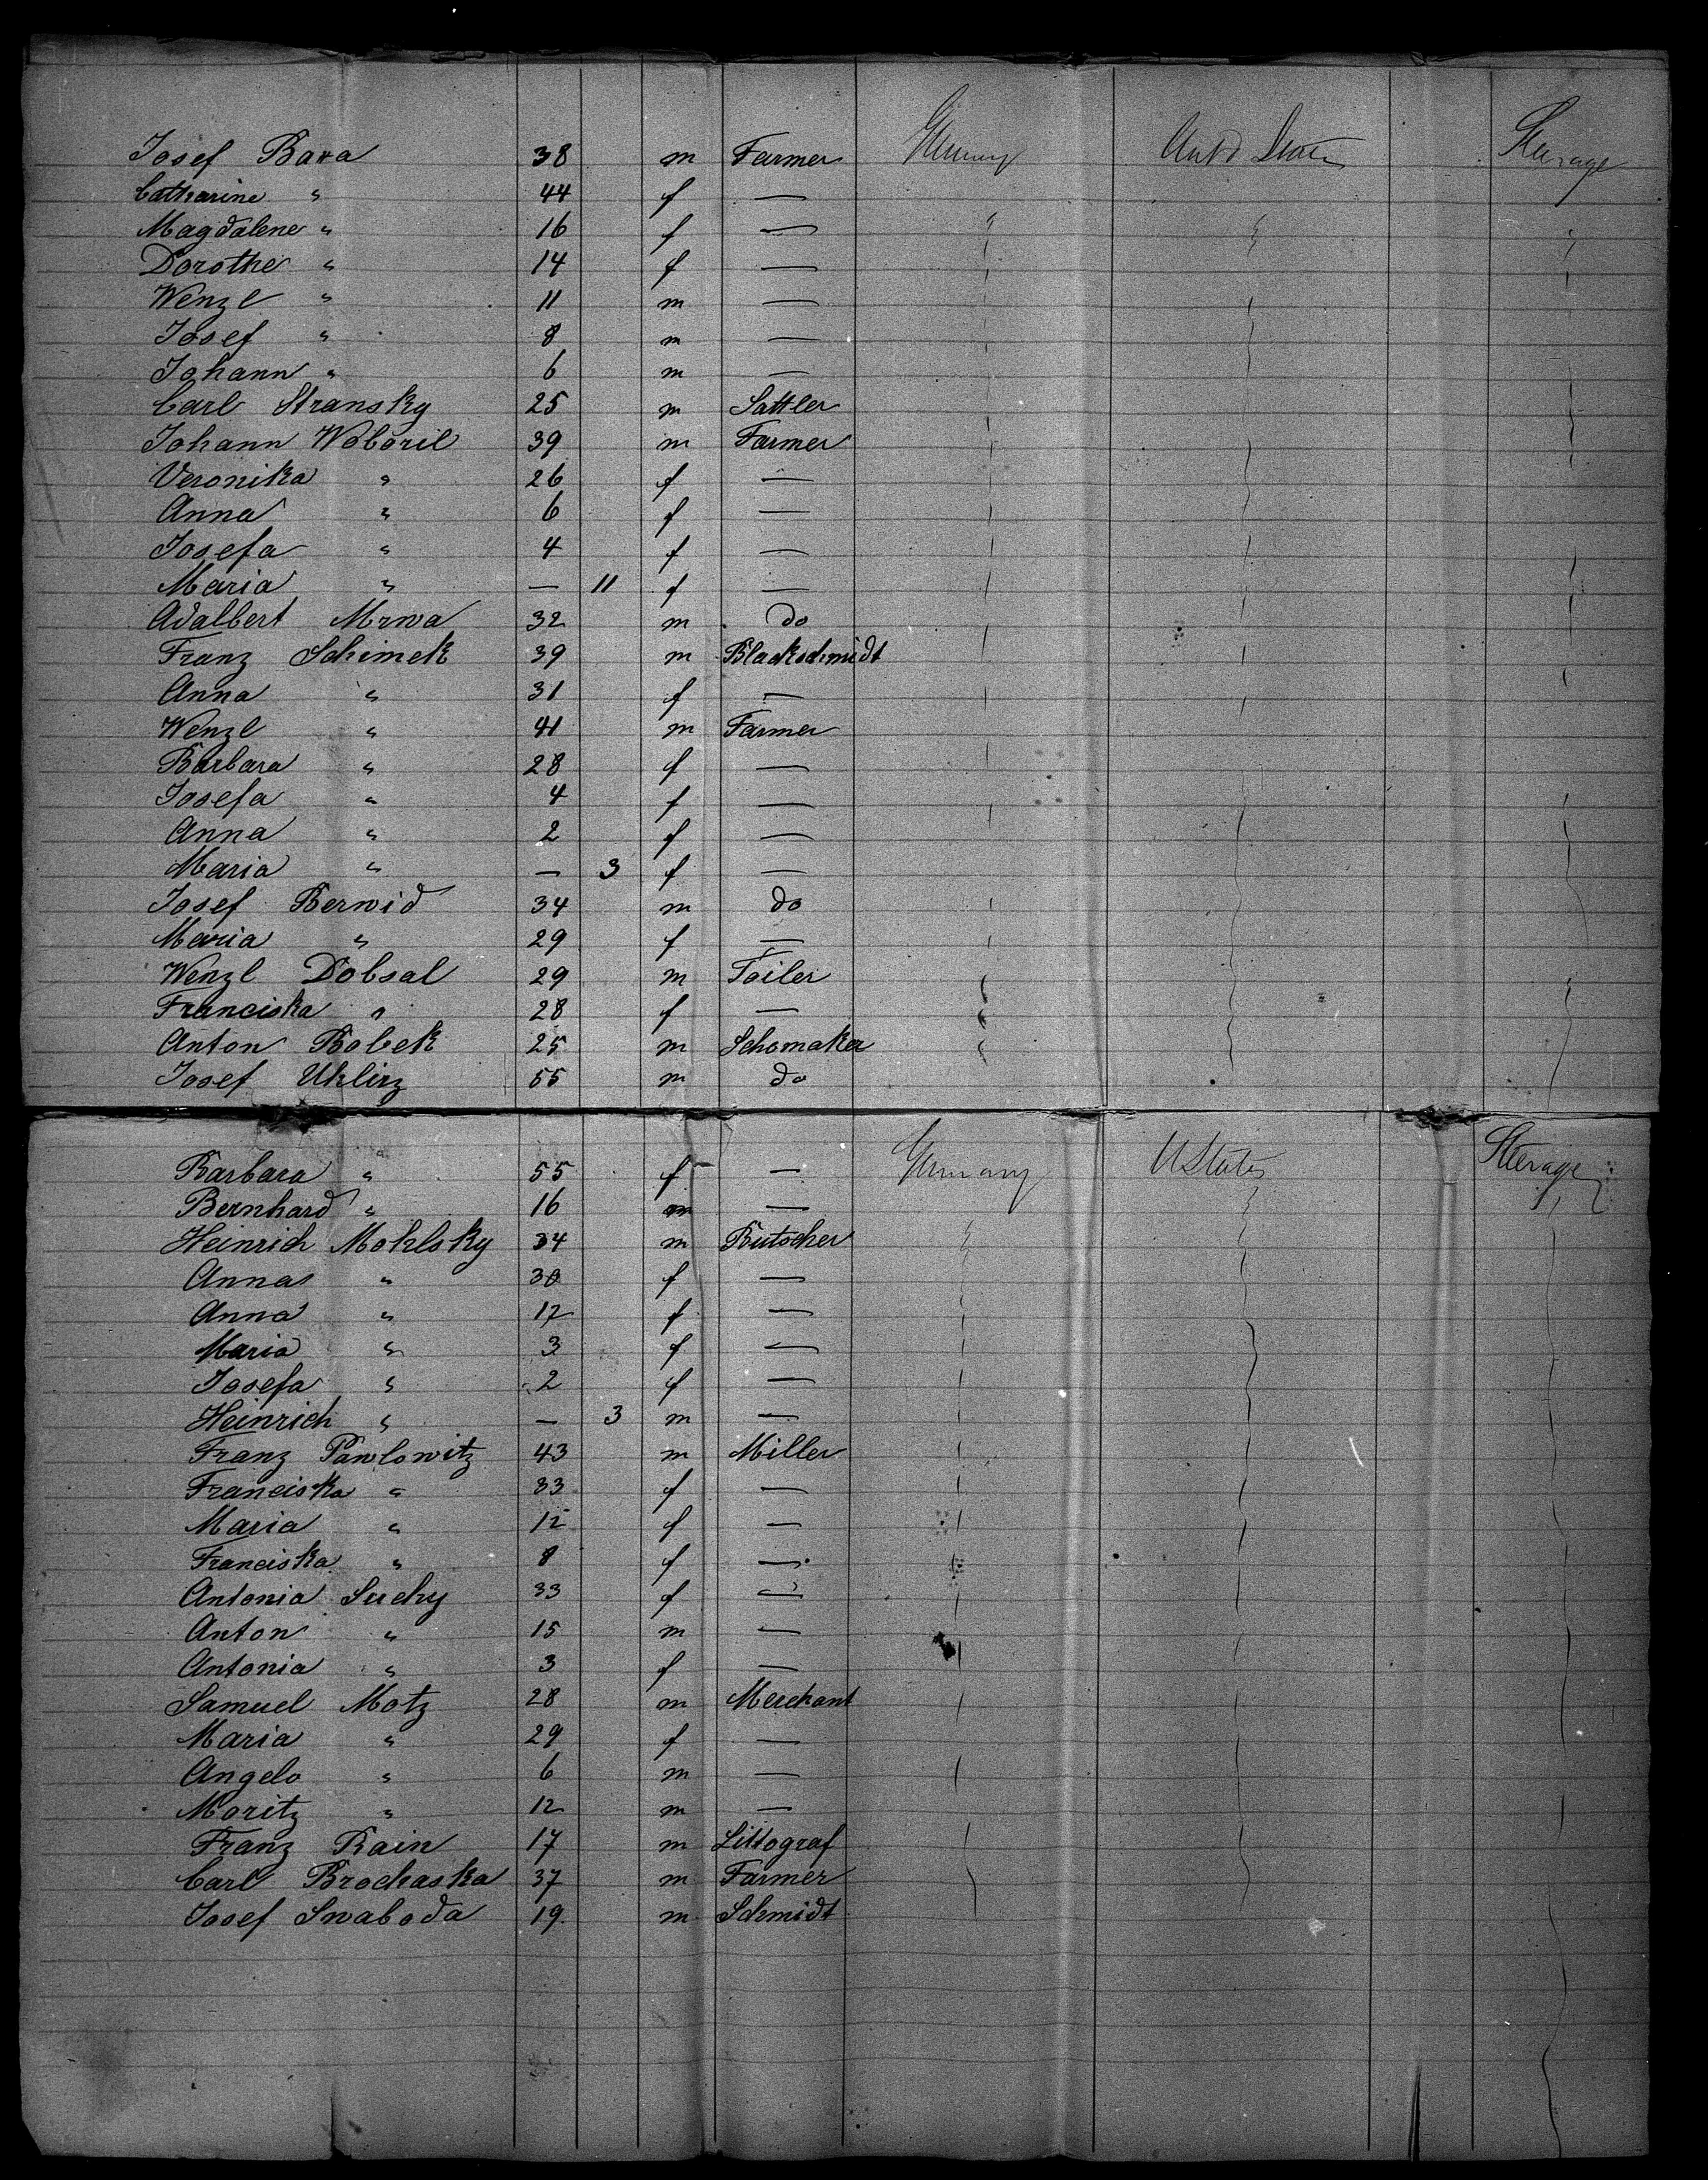 Josef Bara 38 m Farmer Germany Unt'd States Steerage
Catharine " 44 f —
Magdalene " 16 f —
Dorothe " 14 f —
Wenzl " 11 m —
Josef " 8 m —
Johann " 6 m —
Carl Stransky 25 m Sattler
Johann Woboril 39 m Farmer
Veronika " 26 f —
Anna " 6 f —
Josefa " 4 f —
Maria " — 11 f —
Adalbert Mrwa 32 m do
Franz Schimek 39 m Blackschmidt
Anna " 31 f —
Wenzl " 41 m Farmer
Barbara " 28 f —
Josefa " 4 f —
Anna " 2 f —
Maria " — 3 f —
Josef Berwid 34 m do
Maria " 29 f —
Wenzl Dobsal 29 m Toiler
Franciska " 28 f —
Anton Bobek 25 m Schomaker
Josef Uhlirz 55 m do
Barbara " 55 f — Germany UStates Steerage
Bernhard " 16 m —
Heinrich Mohlsky 34 m Butscher
Anna " 30 f —
Anna " 17 f —
Maria " 3 f —
Josefa " 2 f —
Heinrich " — 3 m —
Franz Pawlowitz 43 m Miller
Franciska " 33 f —
Maria " 12 f —
Franciska " 8 f —
Antonia Suchy 33 f —
Anton " 15 m —
Antonia " 3 f —
Samuel Motz 28 m Merchant
Maria " 29 f —
Angelo " 6 m —
Moritz " 12 m —
Franz Rain 17 m Littograf
Carl Brochaska 37 m Farmer
Josef Swaboda 19 m Schmidt